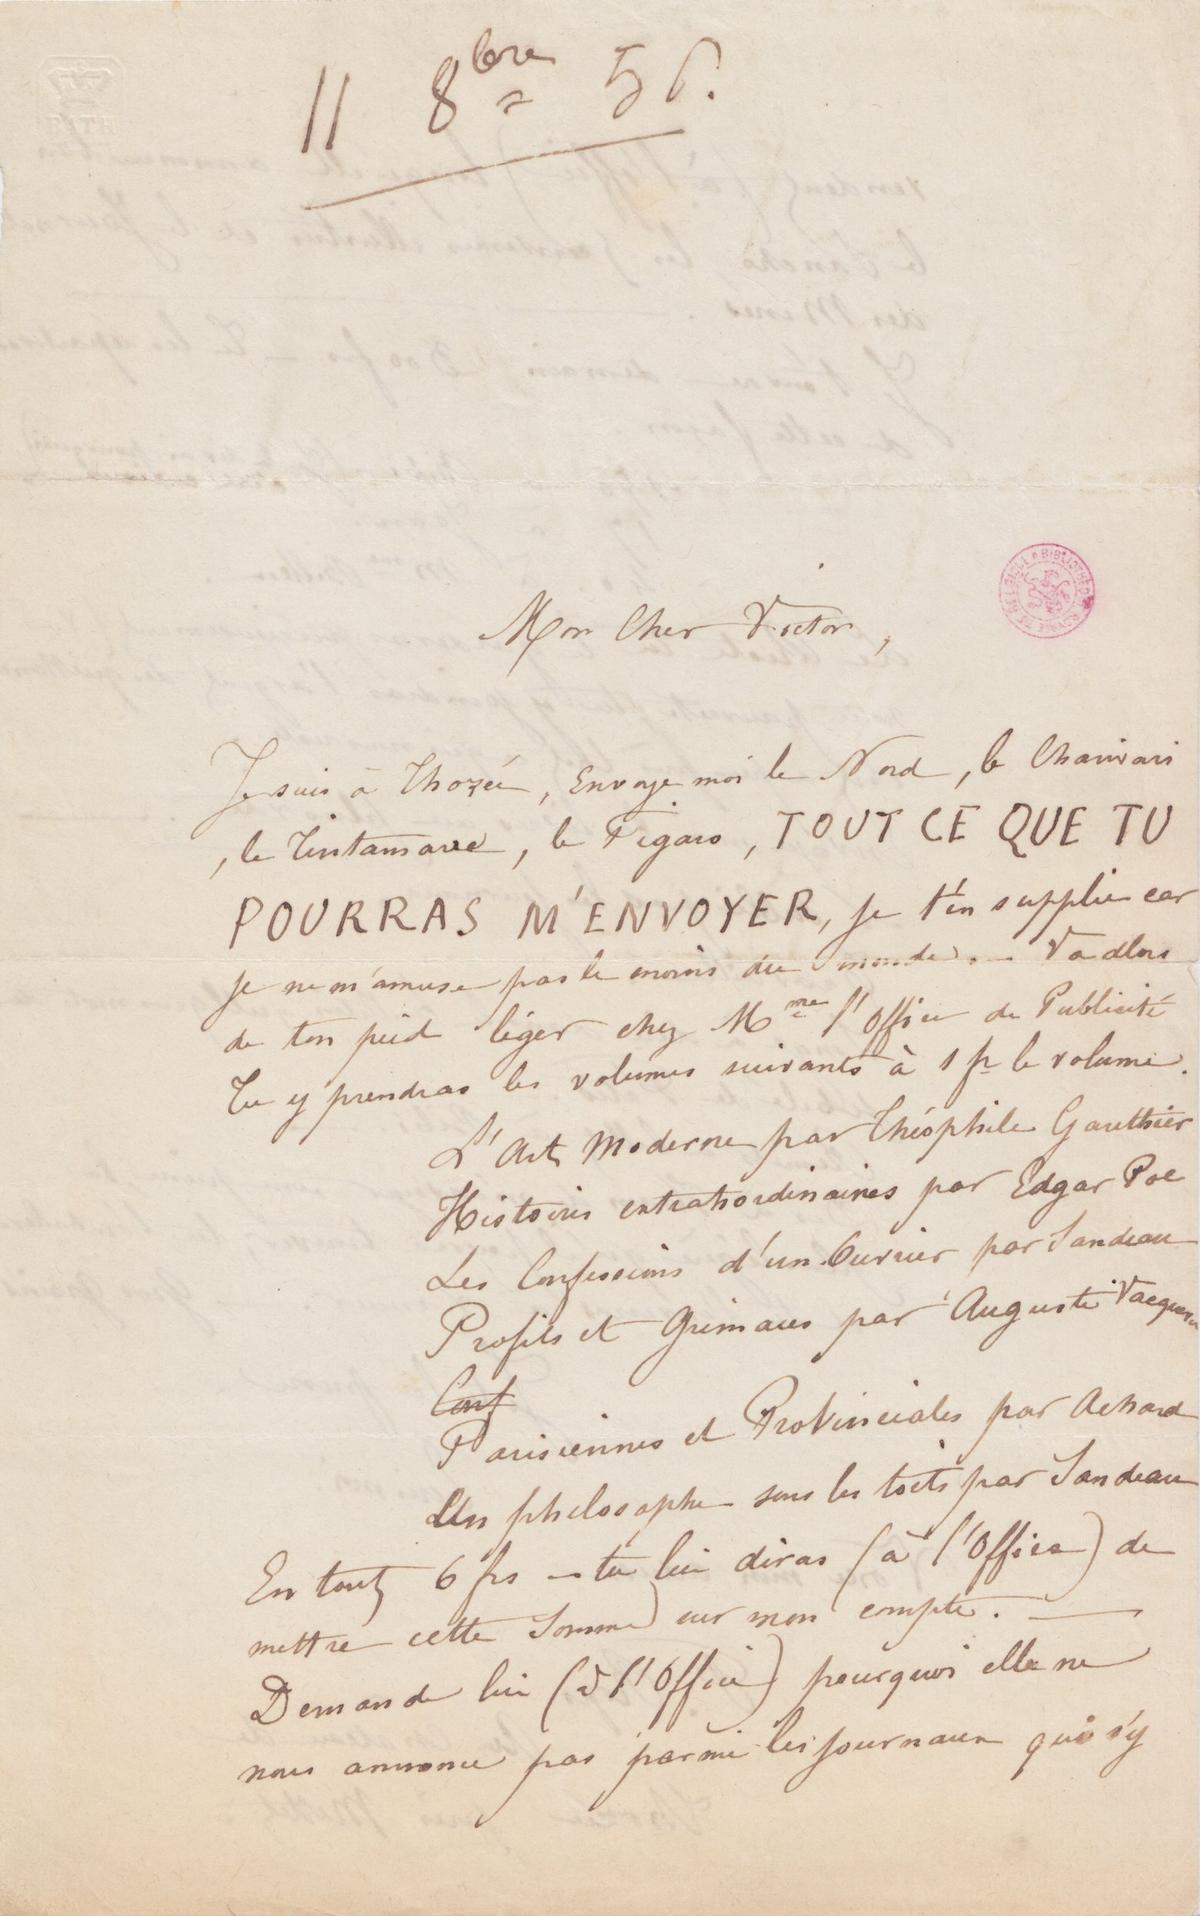 11 8bre 56.
Mon Cher Victor,
Je suis à Thozée, Envoye moi le Nord, le Charivari
, le Tintamarre, le Figaro, TOUT CE QUE TU
POURRAS M'ENVOYER, je t'en supplie car
je ne m'amuse pas le moins du monde. — Va alors
de ton pied léger chez Mme l'Office de Publicité
Tu y prendras les volumes suivants à 1 fr le volume.
L'Art Moderne par Théophile Gauthier
Histoires extrahordinaires par Edgar Poe
Les Confessions d'un Ouvrier par Sandeau
Profils et Grimaces par Auguste Vacquerie
Conf
Parisiennes et Provinciales par Achard
Un philosophe sous les toits par Sandeau
En tout 6 frs — tu lui diras (à l'Office) de
mettre cette somme sur mon compte. —
Demande lui (à l'Office) pourquoi elle ne
nous annonce pas parmi les journaux qui s'y
BIBLIOTHÈQUE ROYALE DE BELGIQUE
BATH